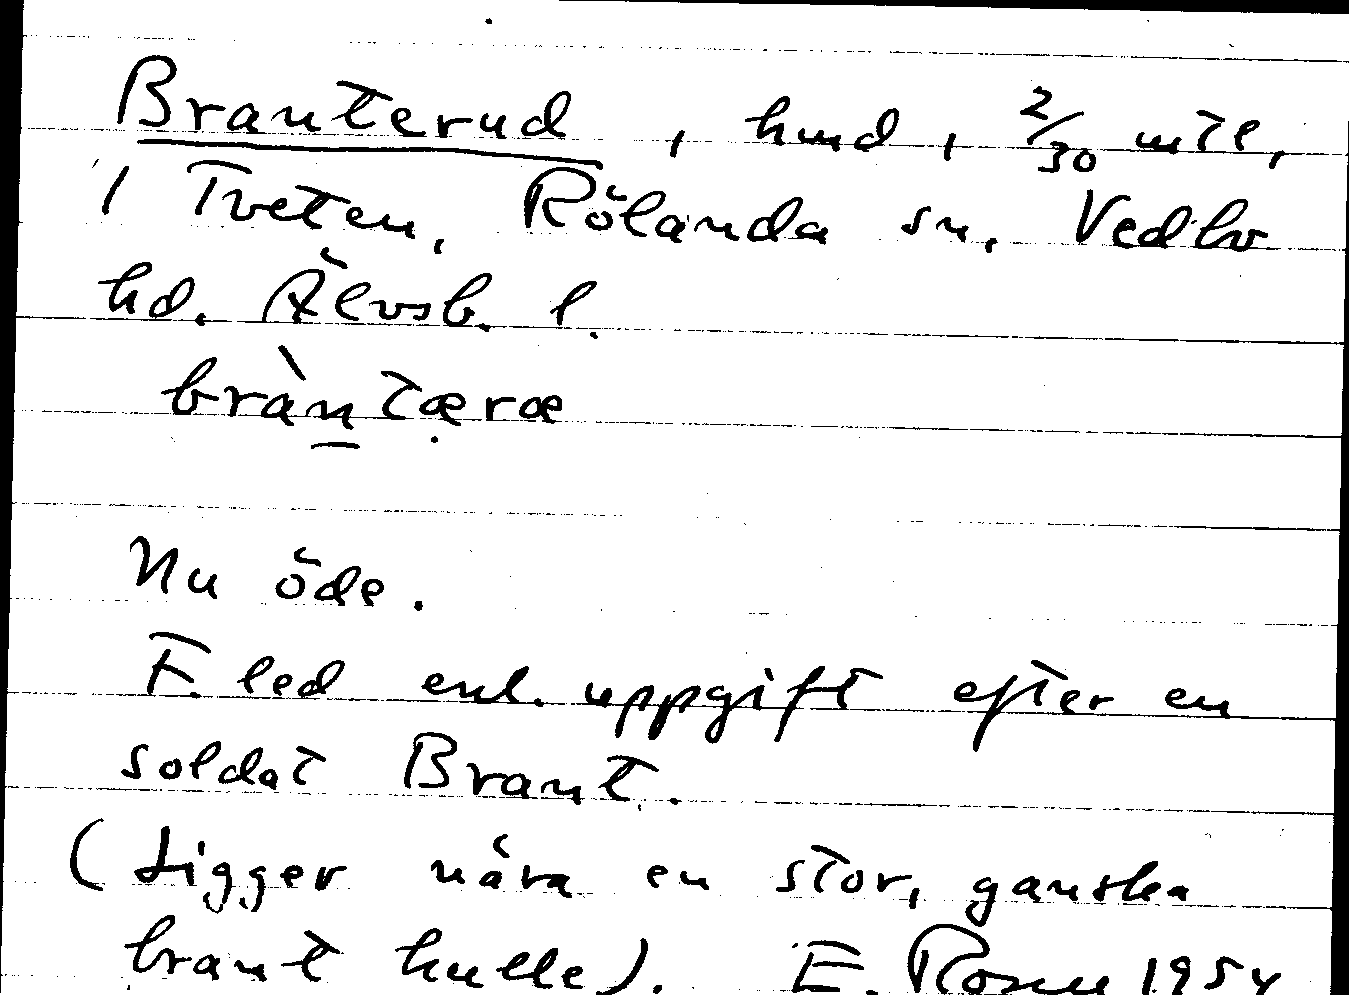 Branterud, hmd, 2/30 mtl,
i Tveten, Rölanda sn, Vedbo
hd. Älvsb. l.
bràntæræ
Nu öde.
F. led enl. uppgift efter en
soldat Brant.
(Ligger nära en stor, ganska
brant kulle). E. 1954